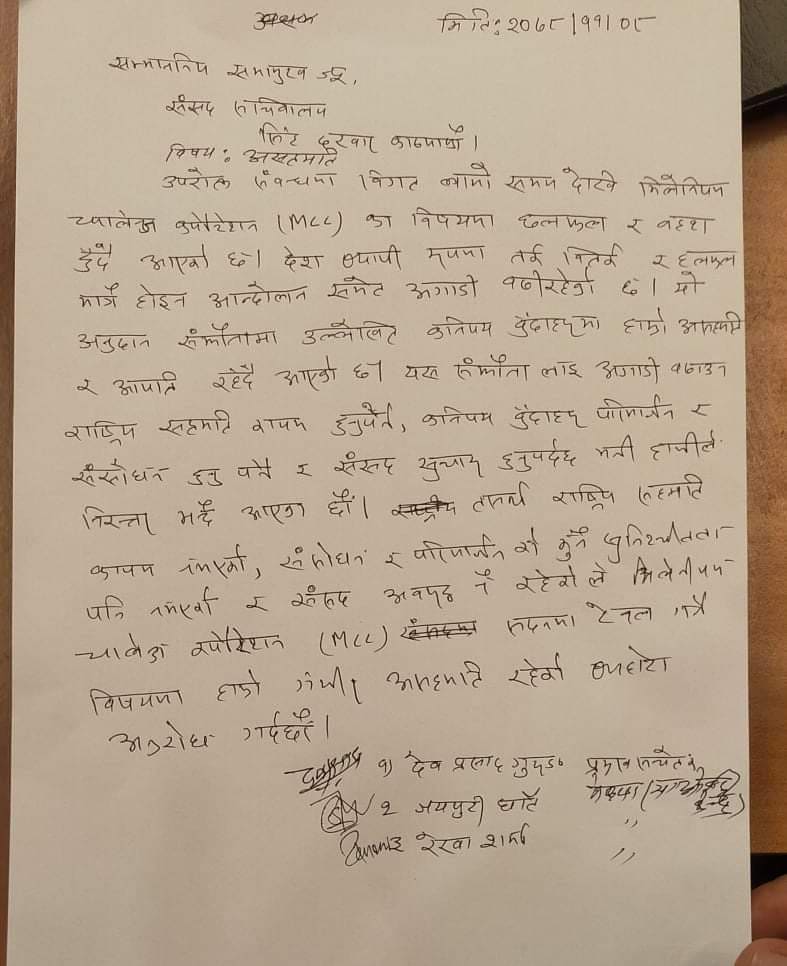 मिति: २०७८/११/०८
सम्माननिय सभामुख ज्यू,
संसद सचिवालय
सिंह दरवार काठमाण्डौ ।
विषय: असहमति
उपरोक्त संवन्धमा विगत लामो समय देखि मिलेनियम
च्यालेन्ज कर्पोरेशन (MCC) का विषयमा छलफल र वहश
हुँदै आएको छ । देश व्यापी रुपमा तर्क वितर्क र छलफल
मात्रै होइन आन्दोलन समेत अगाडी वढीरहेको छ । यो
अनुदान संझौतामा उल्लेखित कतिपय वुँदाहरुमा हाम्रो असहमति
र आपत्ति रहँदै आएको छ । यस संझौता लाइ अगाडी वढाउन
राष्ट्रिय सहमति कायम हुनुपर्ने, कतिपय वुँदाहरु परिमार्जन र
संसोधन हुनु पर्ने र संसद सुचारु हुनुपर्दछ भनी हामीले
निरन्तर भन्दै आएका छौं । तसर्थ राष्ट्रिय सहमति
कायम नभएको, संसोधन र परिमार्जन को कुनै सुनिश्चितता
पनि नभएको र संसद अवरुद्ध नै रहेको ले मिलेनीयम
च्यालेञ्ज कर्पोरेशन (MCC) सदनमा टेवल गर्ने
विषयमा हाम्रो गंभीर असहमति रहेको व्यहोरा
अनुरोध गर्दछौं ।
१) देव प्रसाद गुरुङ प्रमुख सचेतक
२ जयपुरी घर्ति
रेखा शर्मा